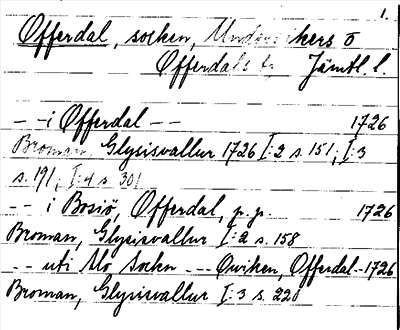 1.
Offerdal, socken, Undersåkers o
Offerdals tr Jämtl. l.
- - i Offerdal - - 1726
Broman, Glysisvallur 1726 I:2 s. 151, I:3
s. 191, I:4 s. 301
- - i Bosiö, Offerdal, p. p. 1726
Broman, Glysisvallur I:2 s. 158
- - uti Mo Sockn - - Owiken, Offerdal - - 1726
Broman, Glysisvallur I:3 s. 220